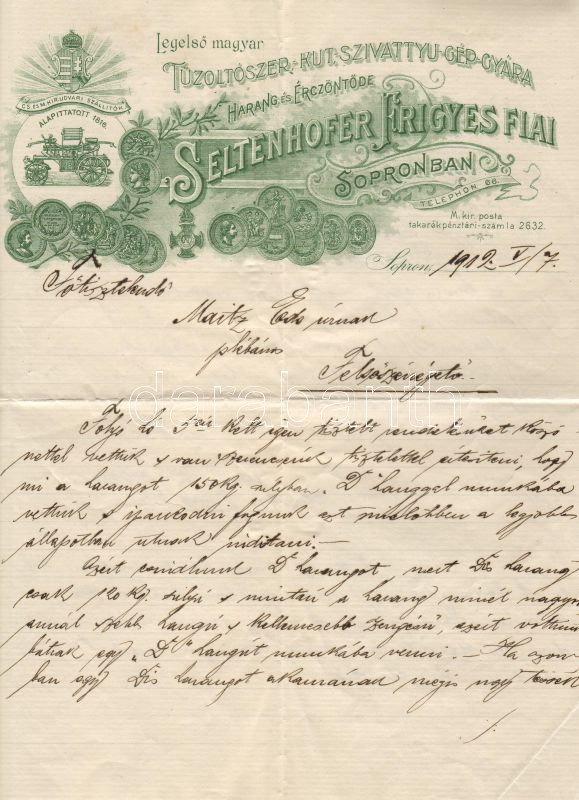 Legelső magyar
TŰZOLTÓSZER-, KUT-, SZIVATTYU-GÉP-GYÁRA
HARANG és ÉRCZÖNTÖDE
SELTENHOFER FRIGYES FIAI
SOPRONBAN
TELEPHON 66.
M. kir. posta
takarékpénztári-számla 2632.
CS. ÉS M. KIR. UDVARI SZÁLLITÓK
ALAPITTATOTT 1816.
Sopron, 1912. V/7.
Főtisztelendő
Maitz Ede úrnak
plébános
Felsőszénégető
Folyó hó 5én kelt igen tisztelt rendelésüket köszö-
nettel vettük s van szerencsénk tisztelettel értesíteni, hogy
mi a harangot 150 kg. súlyban „D" hanggal munkába
vettük s iparkodni fogunk azt mielőbb a legjobb
állapotban utnak indítani.-
Azért csináltunk D harangot mert Dis harang
csak 120 kg. súlyú s miután a harang minél nagyobb
annál szebb hangú s kellemesebb zengésű, azért voltunk
bátrak egy „D" hangút munkába venni. - Ha azon-
ban egy Dis harangot akarnának mégis ugy
darabanth